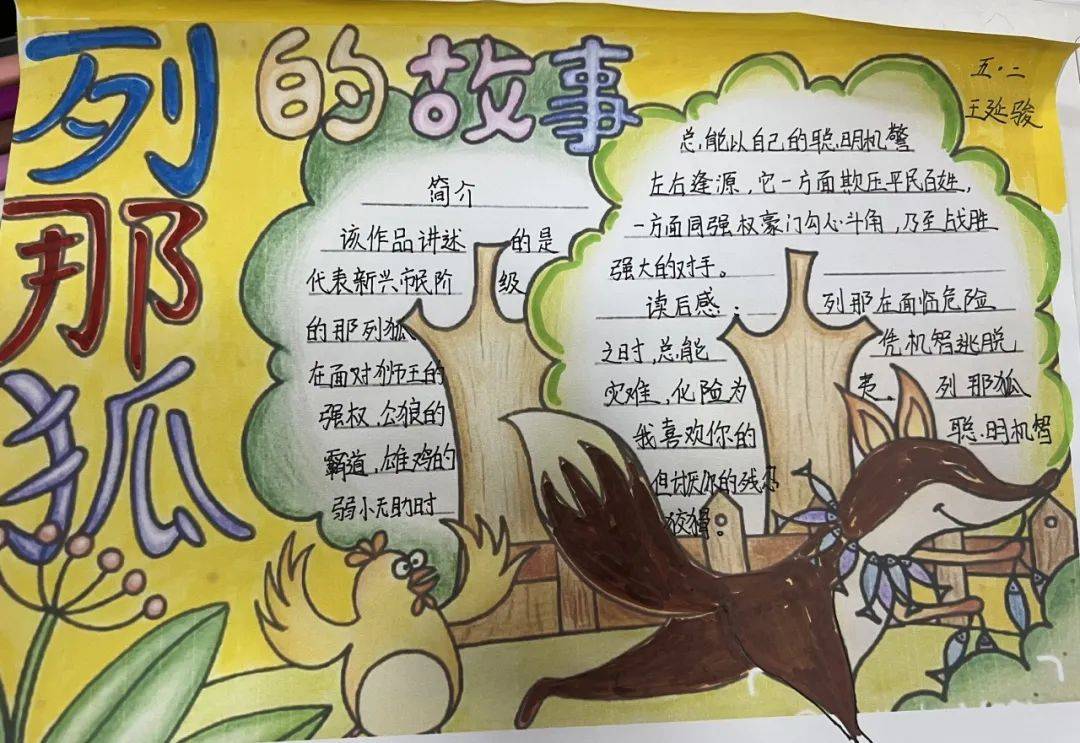 列那狐
的故事
五·二
王延骏
简介
该作品讲述 的是
代表新兴市民阶 级
的那列狐
在面对狮王的
强权,公狼的
霸道,雄鸡的
弱小无助时
总能以自己的聪明机警
左右逢源,它一方面欺压平民百姓,
一方面同强权豪门勾心斗角,乃至战胜
强大的对手。
读后感: 列那在面临危险
之时,总能 凭机智逃脱
灾难,化险为 夷、列那狐
我喜欢你的 聪明机智
但讨厌你的残忍
狡猾。